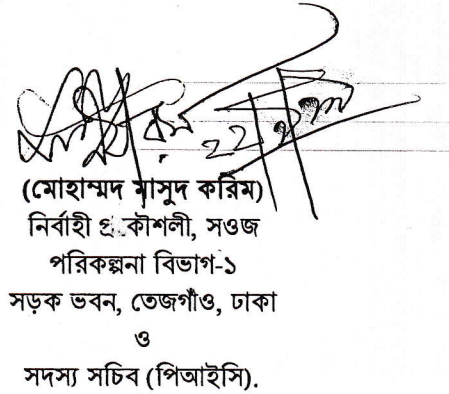 (মোহাম্মদ মাসুদ করিম)
নির্বাহী প্রকৌশলী, সওজ
পরিকল্পনা বিভাগ-১
সড়ক ভবন, তেজগাঁও, ঢাকা
ও
সদস্য সচিব (পিআইসি).